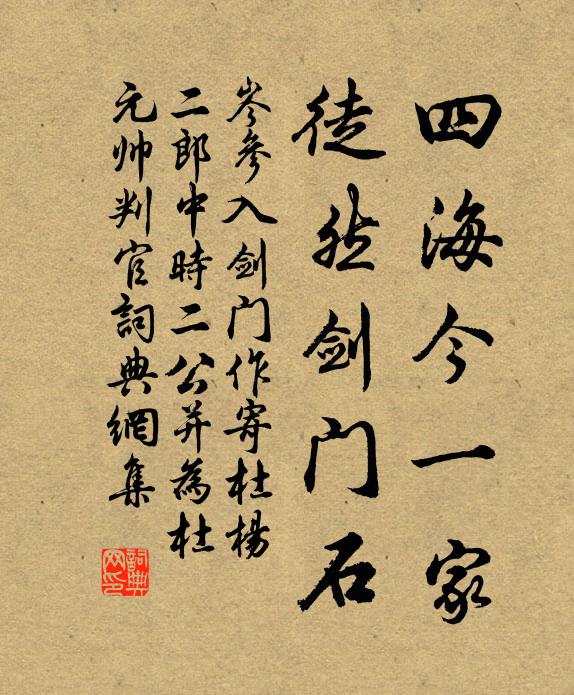 四海今一家
徒然剑门石
岑参入剑门作寄杜杨
二郎中时二公并為杜
元帅判官詞典網集
詞典网印